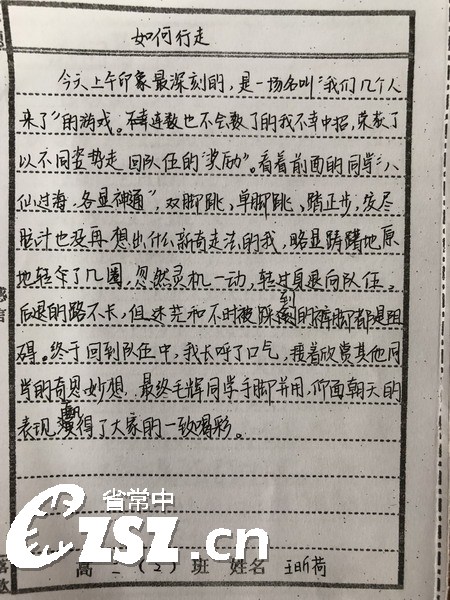 如何行走
今天上午印象最深刻的，是一场名叫“我们几个人
来了”的游戏。连数也不会数了的我不幸中招，荣获了
以不同姿势走回队伍的“奖励”。看着前面的同学“八
仙过海，各显神通”，双脚跳、单脚跳、踏正步，绞尽
脑汁也没再想出什么新奇走法的我，略显踌躇地原
地转了几圈，忽然灵机一动，转过身退向队伍。
后退的路不长，但迷茫和不时被踩到的裤脚都是阻
碍。终于回到队伍中，我长呼了口气，接着欣赏其他同
学的奇思妙想，最终毛辉同学手脚并用，仰面朝天的
表现赢得了大家的一致喝彩。
感言
高二（2）班 姓名 王昕荷
省常中
CZSZ.cn